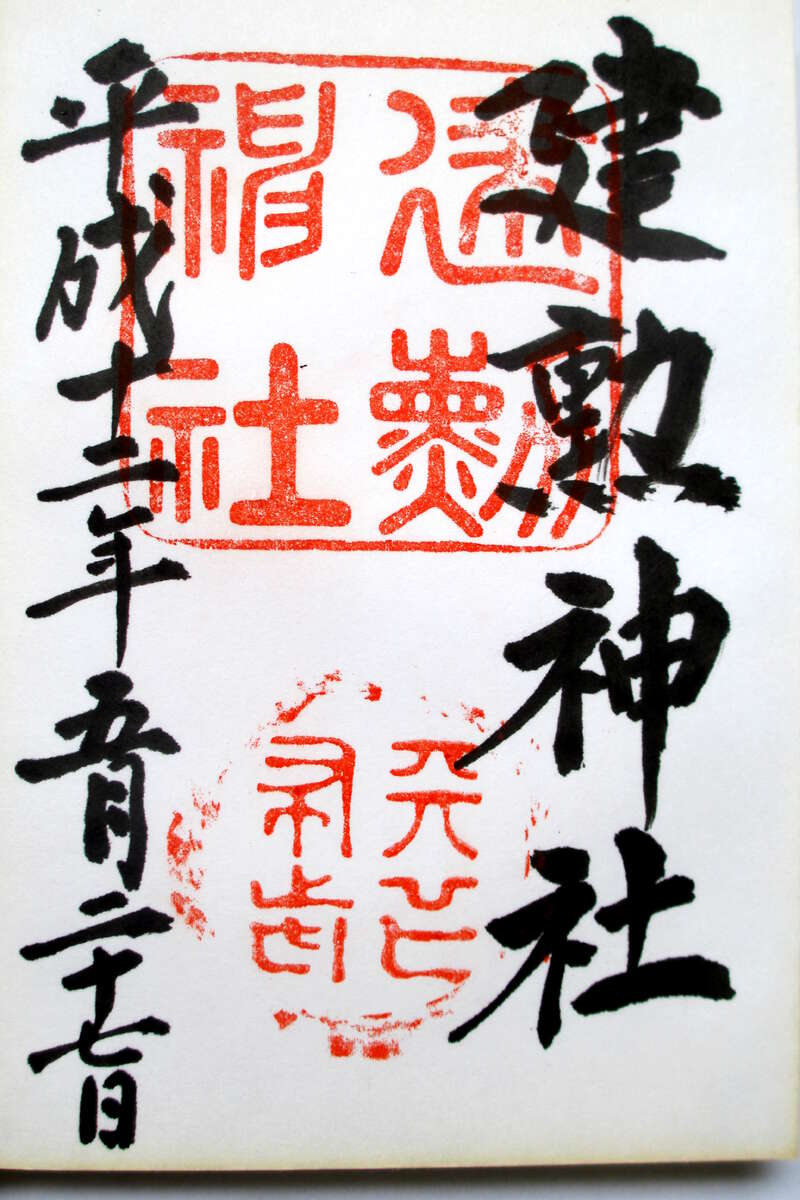 建勲神社
建勲
神社
天下
布武
平成十二年五月二十七日